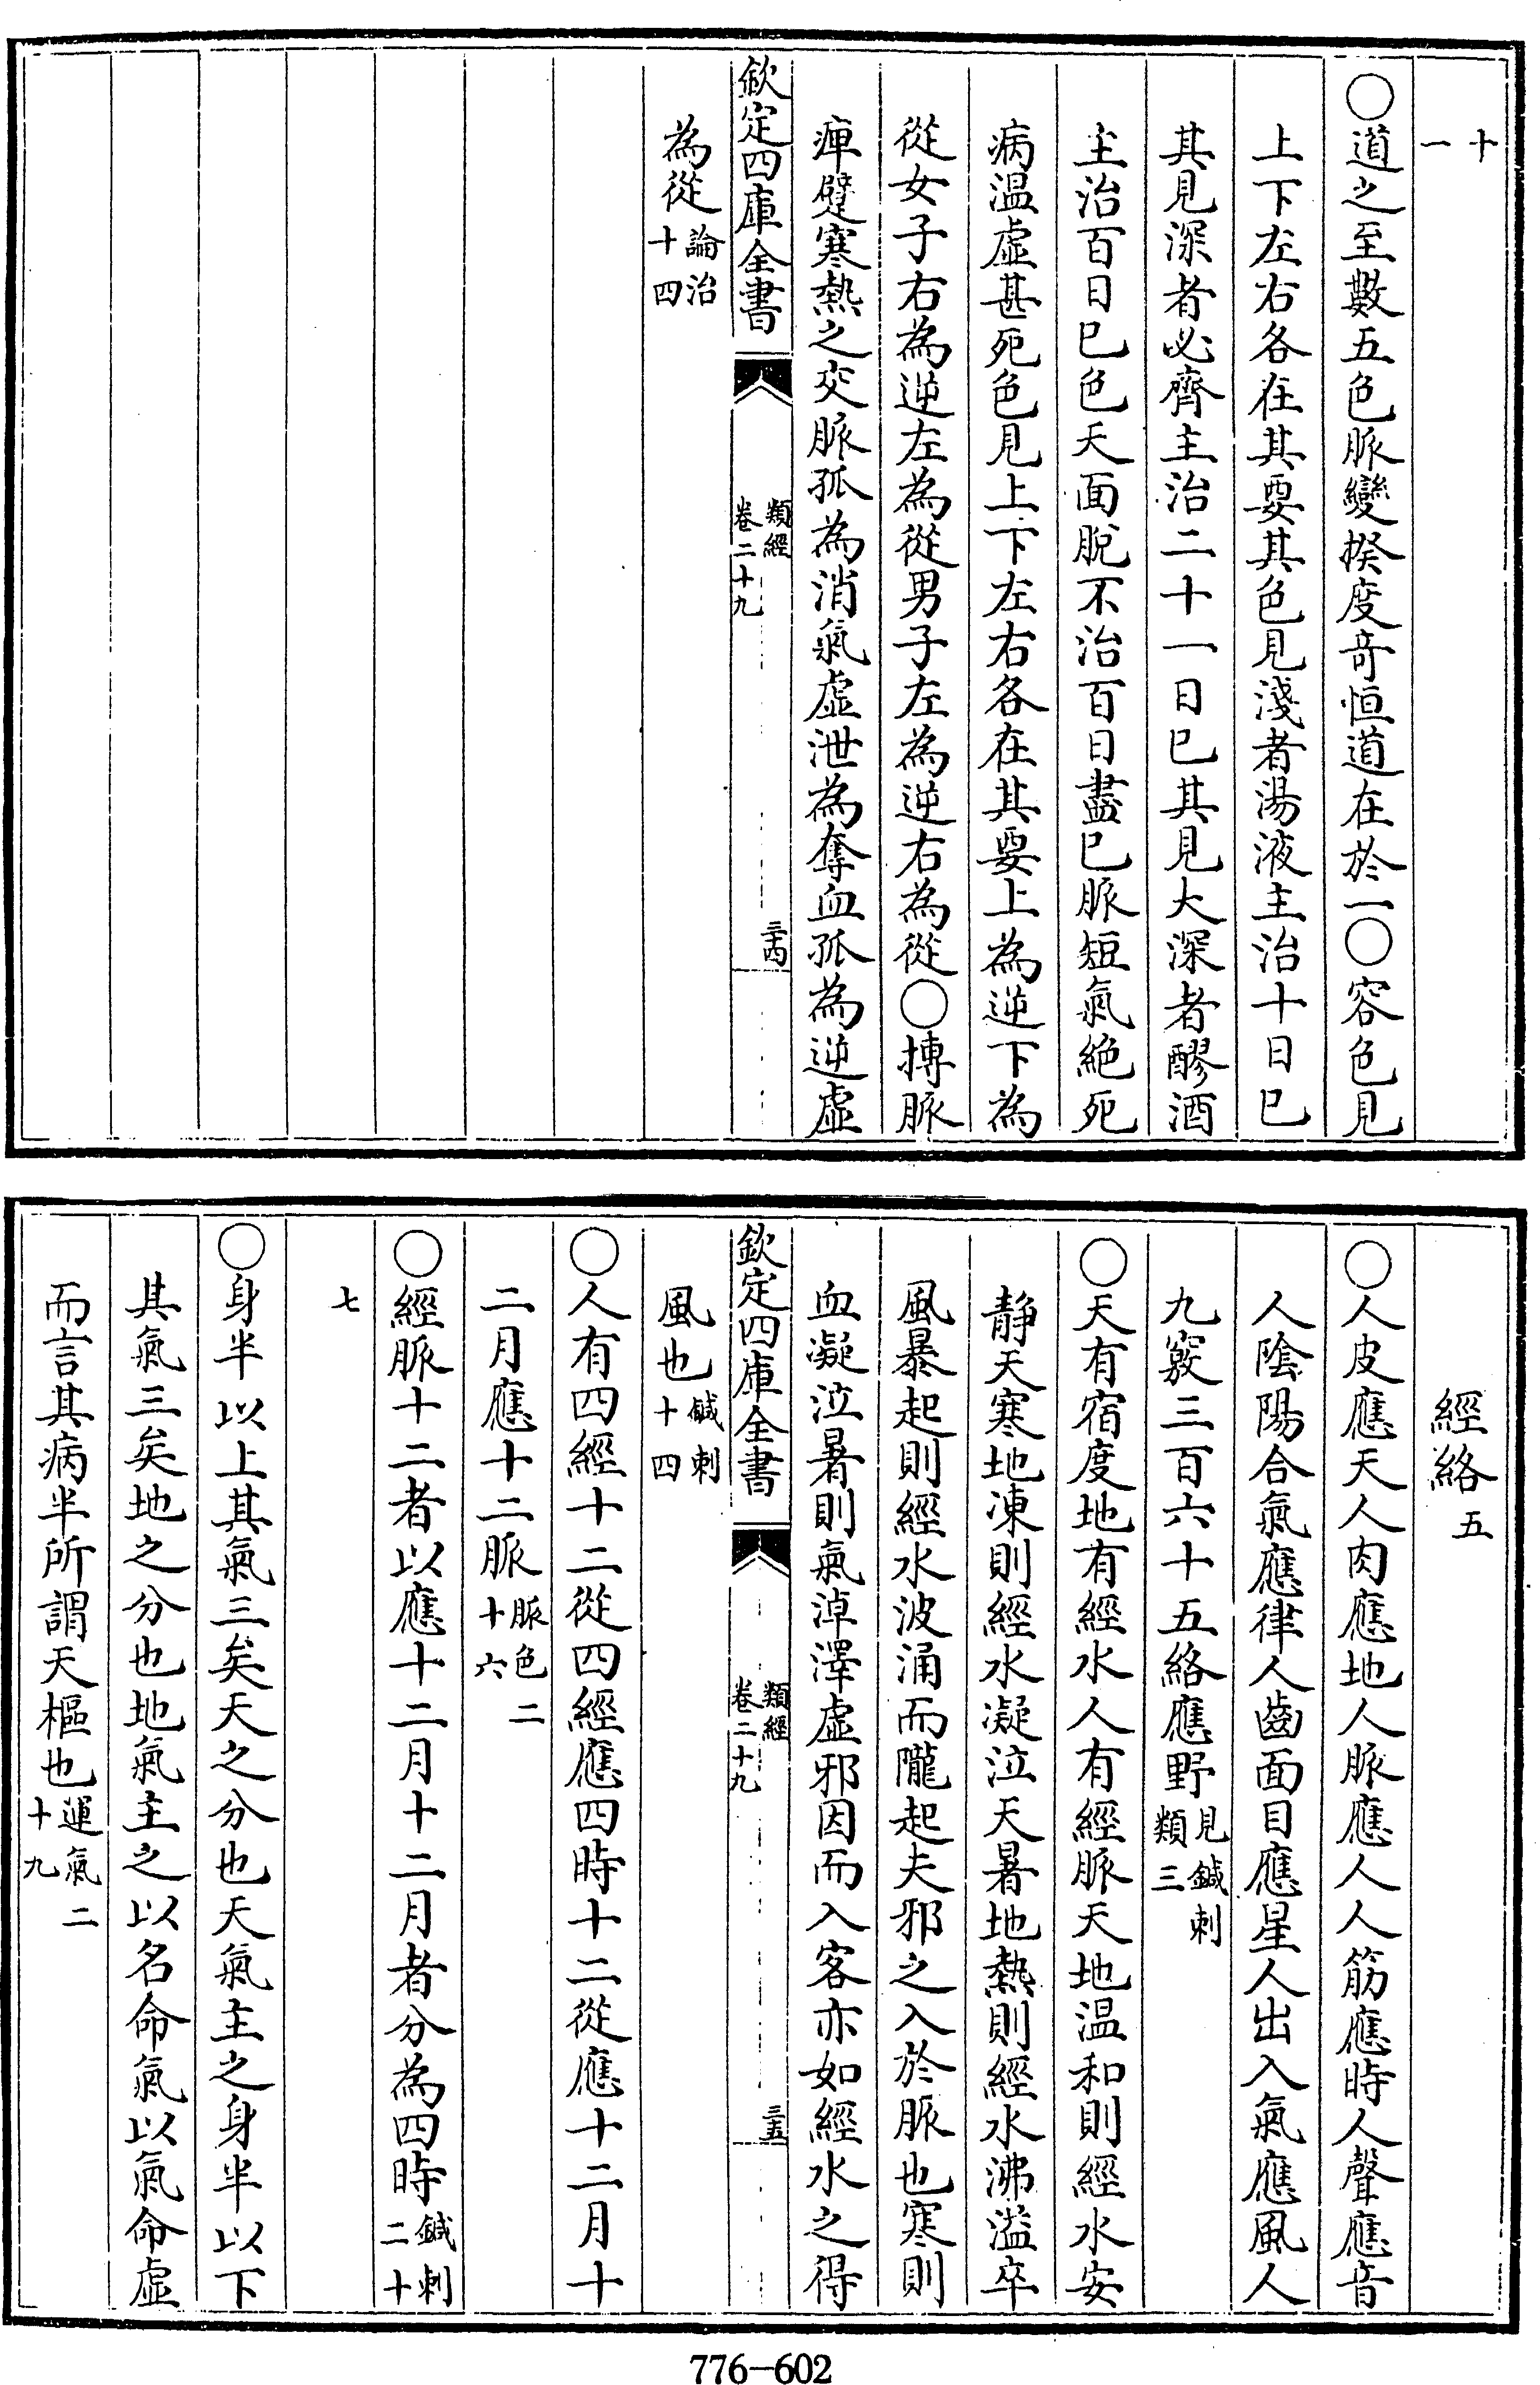 十一
〇道之至數五色脈變揆度竒恒道在於一〇容色見
上下左右各在其要其色見淺者湯液主治十日已
其見深者必齊主治二十一日已其見大深者醪酒
主治百日已色夭面脫不治百日盡已脈短氣絶死
病温虚甚死色見上下左右各在其要上為逆下為
從女子右為逆左為從男子左為逆右為從〇搏脈
痺躄寒熱之交脈孤為消氣虚泄為奪血孤為逆虚
欽定四庫全書 類經卷二十九 三四
為從論治十四
經絡五
〇人皮應天人肉應地人脈應人人筋應時人聲應音
人隂陽合氣應律人齒面目應星人出入氣應風人
九竅三百六十五絡應野見鍼刺類三
〇天有宿度地有經水人有經脈天地温和則經水安
静天寒地凍則經水凝泣天暑地熱則經水沸溢卒
風暴起則經水波涌而隴起夫邪之入於脈也寒則
血凝泣暑則氣淖澤虚邪因而入客亦如經水之得
欽定四庫全書 類經卷二十九 三五
風也鍼刺十四
〇人有四經十二從四經應四時十二從應十二月十
二月應十二脈脈色二十六
〇經脈十二者以應十二月十二月者分為四時鍼刺二十
七
〇身半以上其氣三矣天之分也天氣主之身半以下
其氣三矣地之分也地氣主之以名命氣以氣命處
而言其病半所謂天樞也運氣二十九
776-602